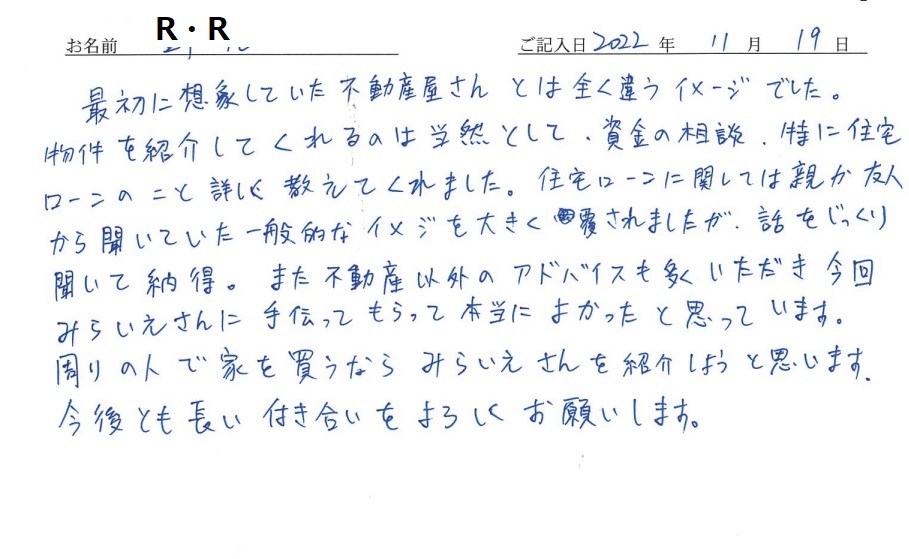 お名前 R・R ご記入日 2022 年 11 月 19 日
最初に想象していた不動産屋さん とは全く違うイメージでした。
物件を紹介してくれるのは当然として、資金の相談、特に住宅
ローンのこと詳しく教えてくれました。住宅ローンに関しては親か友人
から聞いていた一般的なイメジを大きく覆されましたが、話をじっくり
聞いて納得。また不動産以外のアドバイスも多くいただき今回
みらいえさんに手伝ってもらって本当によかったと思っています。
周りの人で家を買うならみらいえさんを紹介しようと思います。
今後とも長い付き合いをよろしくお願いします。